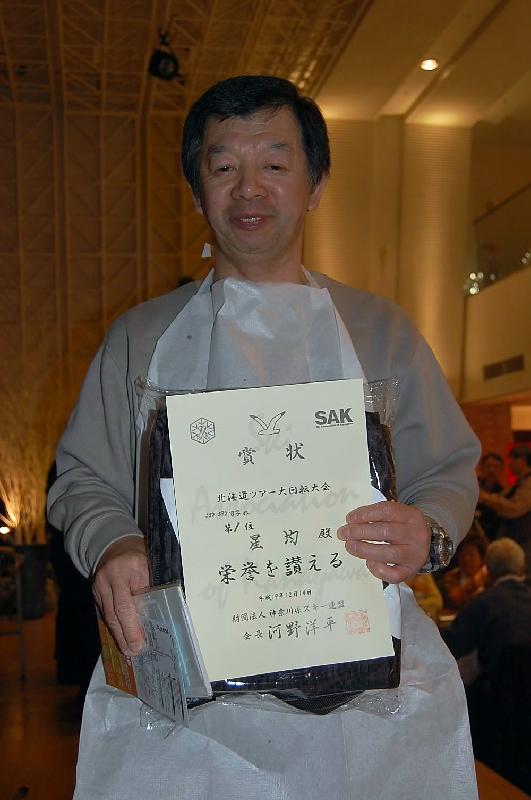 SAK
賞状
Ski
Association
of
北海道ツアー大回転大会
第1位
星 均 殿
栄誉を讃える
平成19年12月14日
財団法人 神奈川県スキー連盟
会長 河野洋平